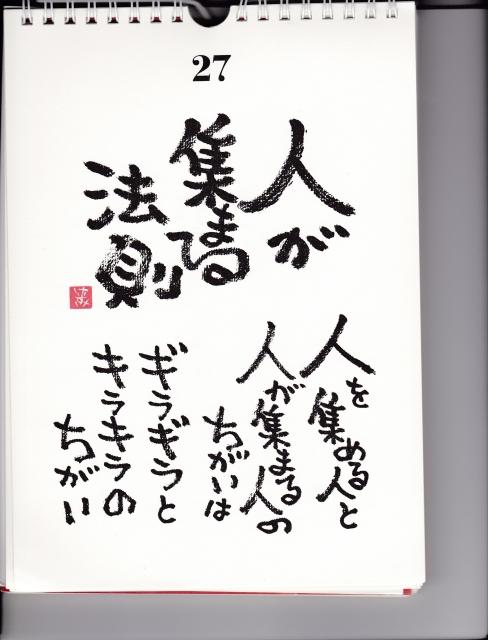 27
人が
集まる
法則
人を集める人と
人が集まる人の
ちがいは
ギラギラと
キラキラの
ちがい